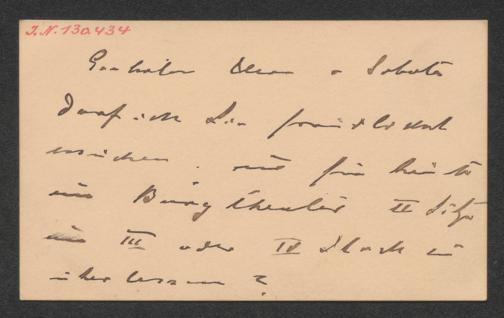 I.N. 130.434
Geehrter Herr v Sobota
Darf ich Sie freundlichst
ersuchen, mir für heute
im Burgtheater II Sitze
im III oder IV Stock zu
überlassen?